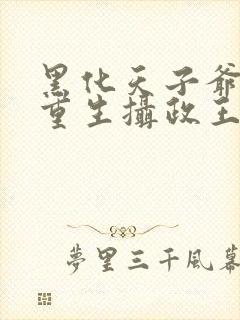 黑化天子爺
重生攝政王
夢里三千風幕